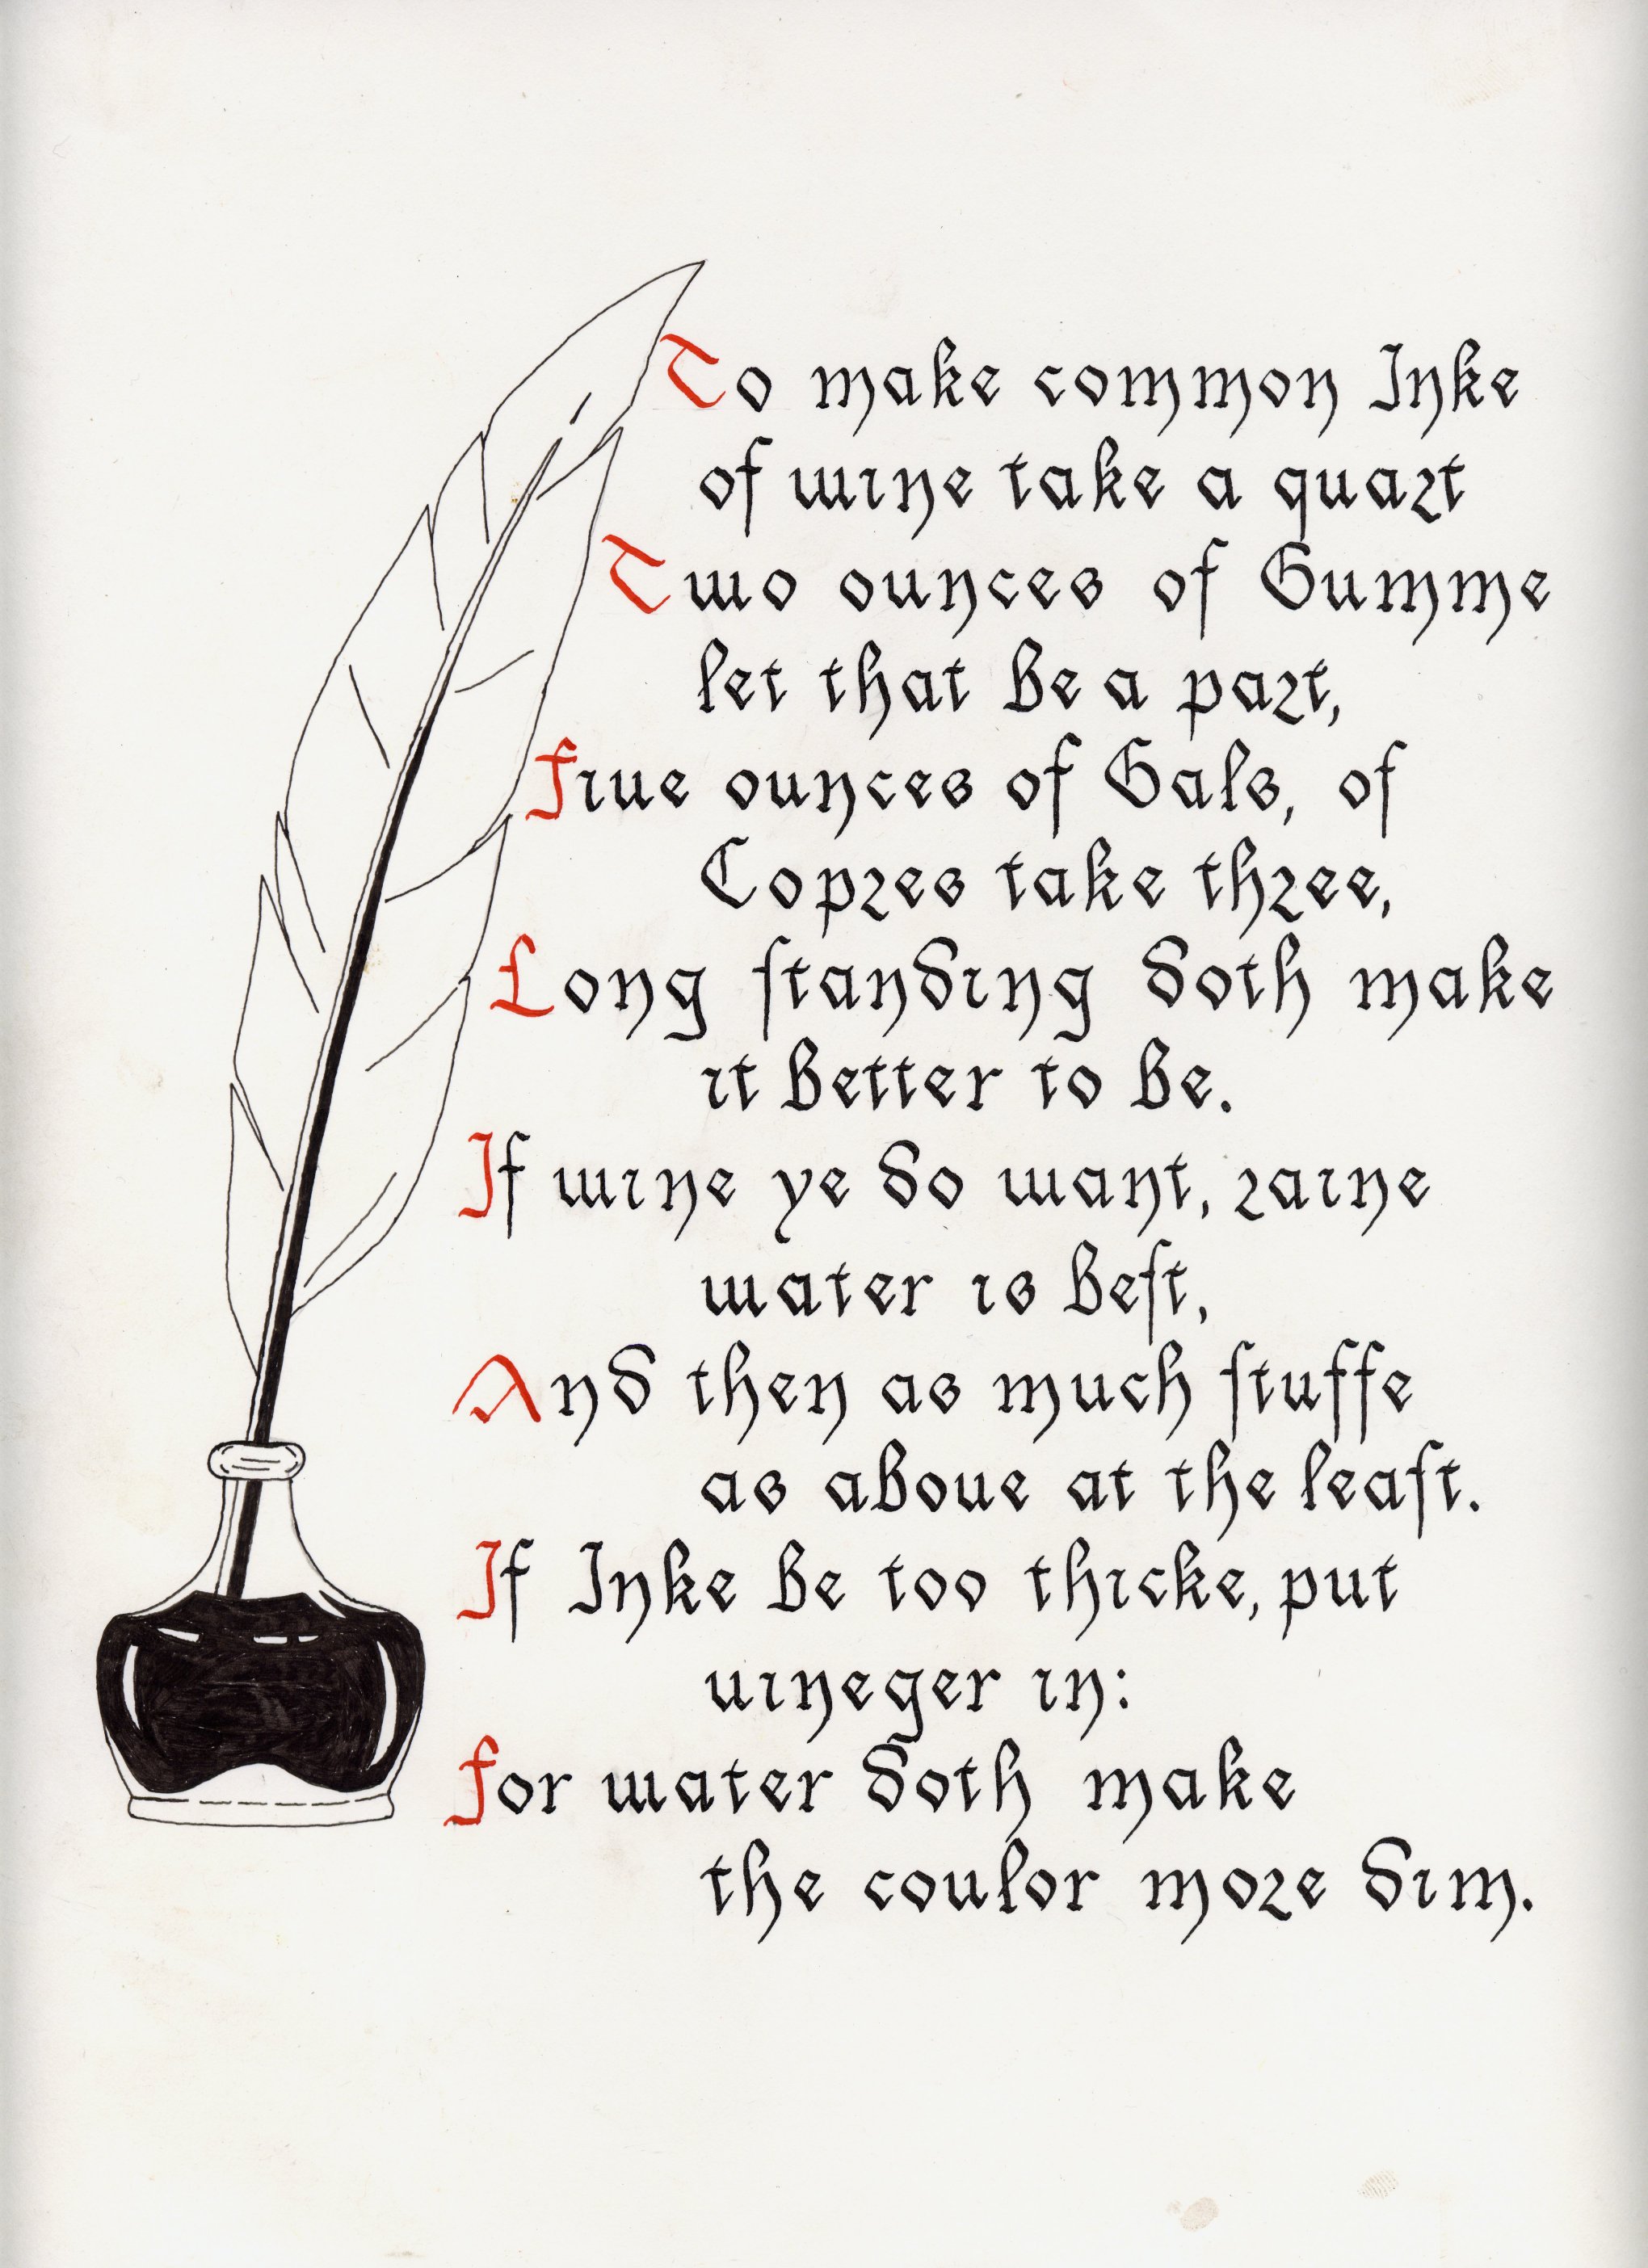 To make common Inke
of wine take a quart
Two ounces of Gumme
let that be a part,
Fiue ounces of Gals, of
Copres take three,
Long ſtanding doth make
it better to be.
If wine ye do want, raine
water is beſt,
And then as much ſtuffe
as aboue at the leaſt.
If Inke be too thicke, put
uineger in:
For water doth make
the coulor more dim.